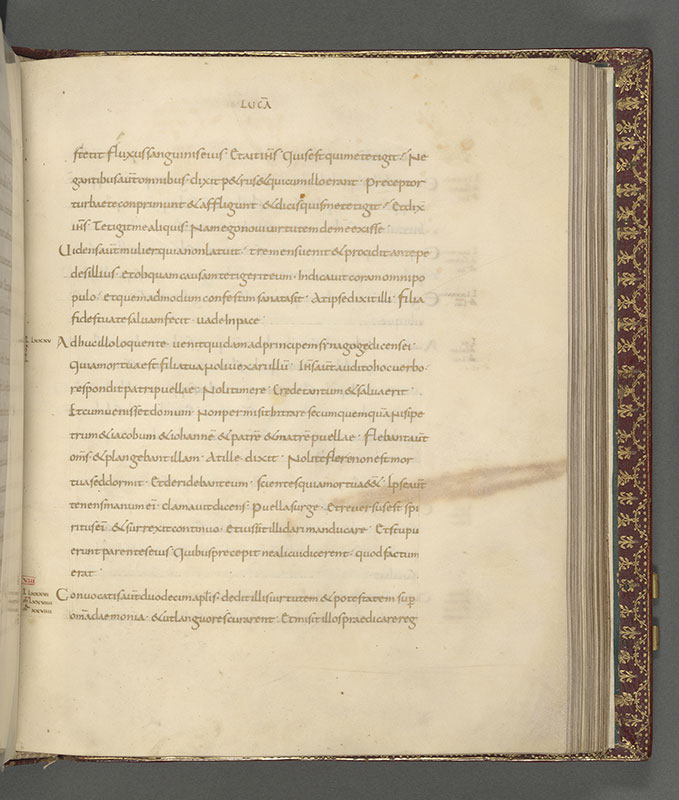 LUCĀ
stetit fluxus sanguinis eius · Et ait ih̄s · Quis est qui me tetigit · Ne
gantibus aūt omnibus · dixit petrus & qui cum illo erant · Preceptor
turbae te conprimunt & affligunt · & dicis quis me tetigit · Et dix̄
ih̄s · Tetigit me aliquis · Nam ego noui uirtutem de me exisse ·
Uidens aūt mulier quia non latuit · tremens uenit & procidit ante pe
des illius · et ob quam causam tetigerit eum · Indicauit coram omni po
pulo · Et quemadmodum confestim sanata sit · At ipse dixit illi · filia
fides tua te saluam fecit · uade in pace ·
LXXXV
Adhuc illo loquente · uenit quidam ad principem synagoge dicens ei ·
Quia mortua est filia tua noli uexare illū · Ih̄s aūt audito hoc uerbo ·
respondit patri puellae · Noli timere · Crede tantum & salua erit ·
Et cum uenisset domum · Non permisit intrare secum quemquā nisi pe
trum & iacobum & iohannē & patrē & matrē puellae · Flebant aūt
om̄s & plangebant illam · At ille dixit · Nolite flere non est mor
tua sed dormit · Et deridebant eum · scientes quia mortua eēt · Ipse aūt
tenens manum eī · clamauit dicens · Puella surge · Et reuersus est spi
ritus eī · & surrexit continuo · Et iussit illi dari manducare · Et stupu
erunt parentes eius · Quibus precepit ne alicui dicerent · quod factum
erat ·
Conuocatis aūt duodecim apl̄is · dedit illis uirtutem & potestatem sup̄
om̄a daemonia · & ut languores curarent · Et misit illos praedicare reg